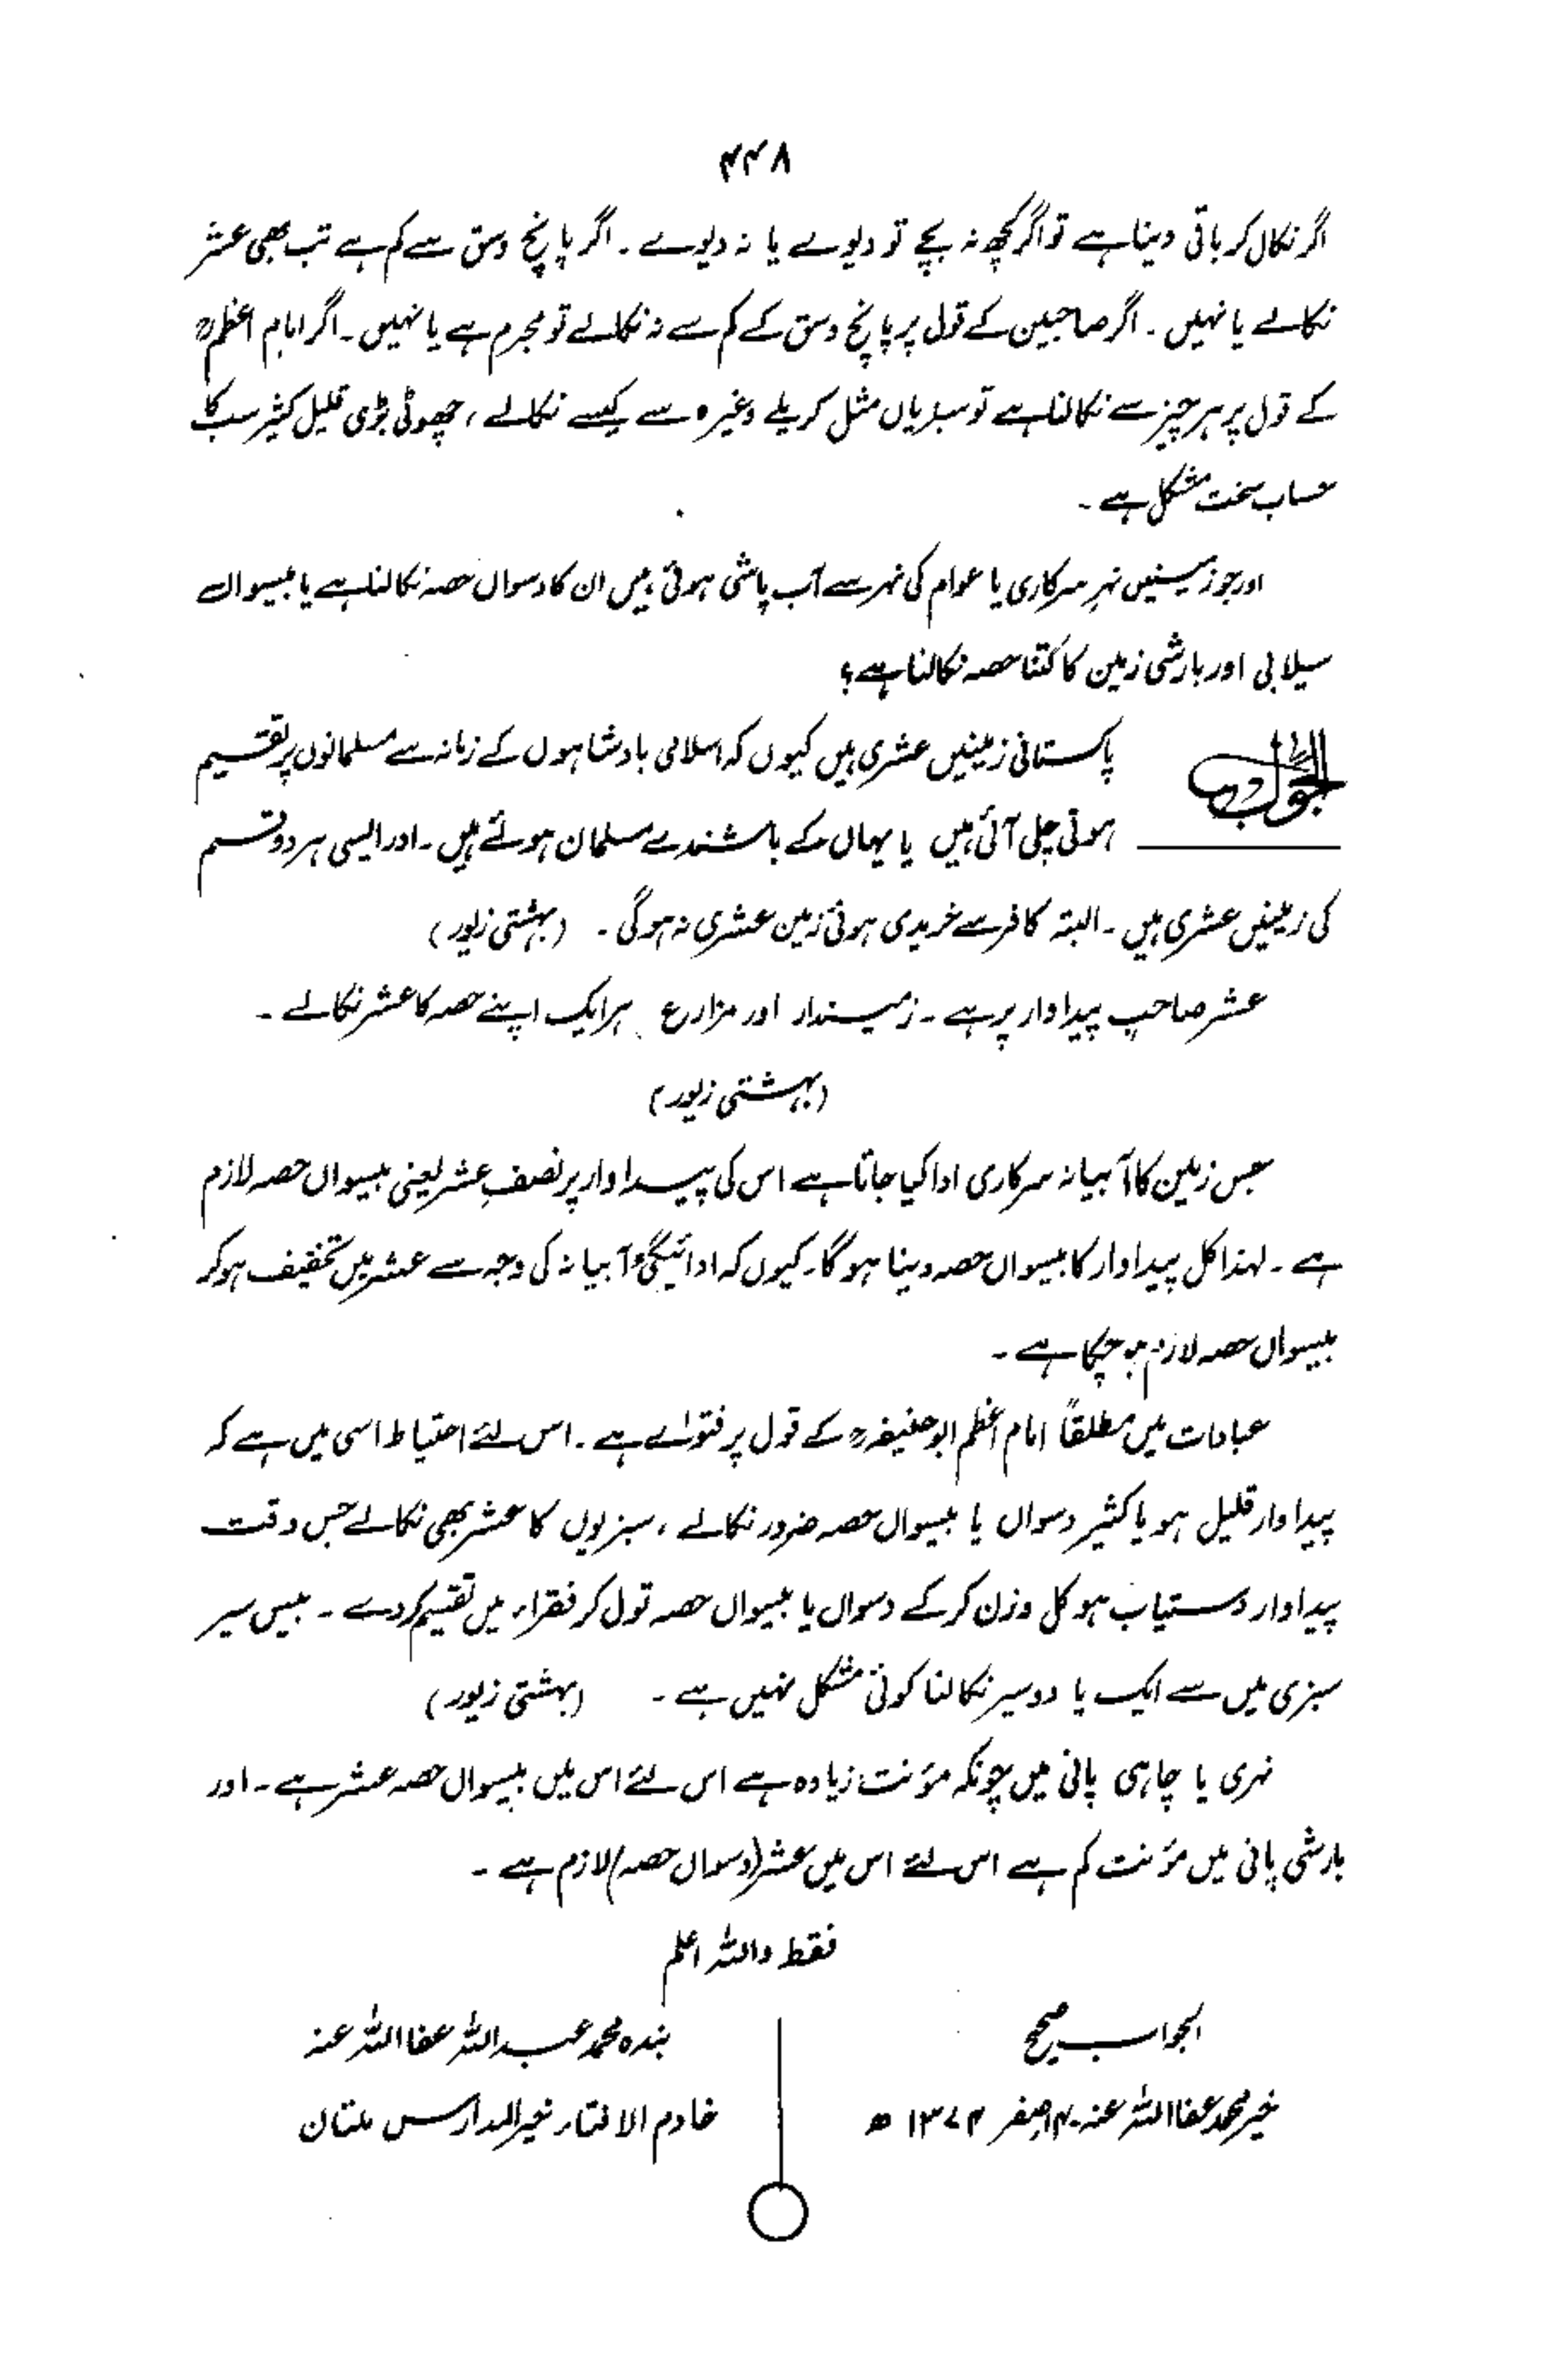 ۴۴۸
اگر نکال کر باقی دینا ہے تو اگر کچھ نہ بچے تو دیوے یا نہ دیوے ۔ اگر پانچ وسق سے کم ہے تب بھی عشر
نکالے یا نہیں ۔ اگر صاحبین کے قول پر پانچ وسق کے کم سے نہ نکالے تو مجرم ہے یا نہیں ۔ اگر امام اعظمؒ
کے قول پر ہر چیز سے نکالنا ہے تو سبزیاں مثل کریلے وغیرہ سے کیسے نکالے ، چھوٹی بڑی قلیل کثیر سب کا
حساب سخت مشکل ہے ۔
اور جو زمینیں نہر سرکاری یا عوام کی نہر سے آب پاشی ہوتی ہیں ان کا دسواں حصہ نکالنا ہے یا بیسواں
سیلابی اور بارشی زمین کا کتنا حصہ نکالنا ہے ؟
الجواب
پاکستانی زمینیں عشری ہیں کیوں کہ اسلامی بادشاہوں کے زمانہ سے مسلمانوں پر تقسیم
ہوتی چلی آئی ہیں یا یہاں کے باشندے مسلمان ہوئے ہیں ۔ اور ایسی ہر دو قسم
کی زمینیں عشری ہیں ۔ البتہ کافر سے خریدی ہوئی زمین عشری نہ ہوگی ۔ (بہشتی زیور)
عشر صاحبِ پیداوار پر ہے ۔ زمیندار اور مزارع ہر ایک اپنے حصہ کا عشر نکالے ۔
(بہشتی زیور)
جس زمین کا آبیانہ سرکاری ادا کیا جاتا ہے اس کی پیداوار پر نصفِ عشر یعنی بیسواں حصہ لازم
ہے ۔ لہذا کل پیداوار کا بیسواں حصہ دینا ہو گا ۔ کیوں کہ ادائیگیٔ آبیانہ کی وجہ سے عشر میں تخفیف ہو کر
بیسواں حصہ لازم ہو چکا ہے ۔
عبادات میں مطلقاً امام اعظم ابو حنیفہؒ کے قول پر فتوےٰ ہے ۔ اس لئے احتیاط اسی میں ہے کہ
پیداوار قلیل ہو یا کثیر دسواں یا بیسواں حصہ ضرور نکالے ، سبزیوں کا عشر بھی نکالے جس وقت
پیداوار دستیاب ہو کل وزن کر کے دسواں یا بیسواں حصہ تول کر فقراء میں تقسیم کر دے ۔ بیس سیر
سبزی میں سے ایک یا دو سیر نکالنا کوئی مشکل نہیں ہے ۔ (بہشتی زیور)
نہری یا چاہی پانی میں چونکہ مؤنت زیادہ ہے اس لئے اس میں بیسواں حصہ عشر ہے ۔ اور
بارشی پانی میں مؤنت کم ہے اس لئے اس میں عشر (دسواں حصہ) لازم ہے ۔
فقط واللہ اعلم
الجواب صحیح
خیر محمد عفا اللہ عنہ ۔ صفر ۱۳۷۴ ھ
بندہ محمد عبد اللہ عفا اللہ عنہ
خادم الافتاء خیر المدارس ملتان